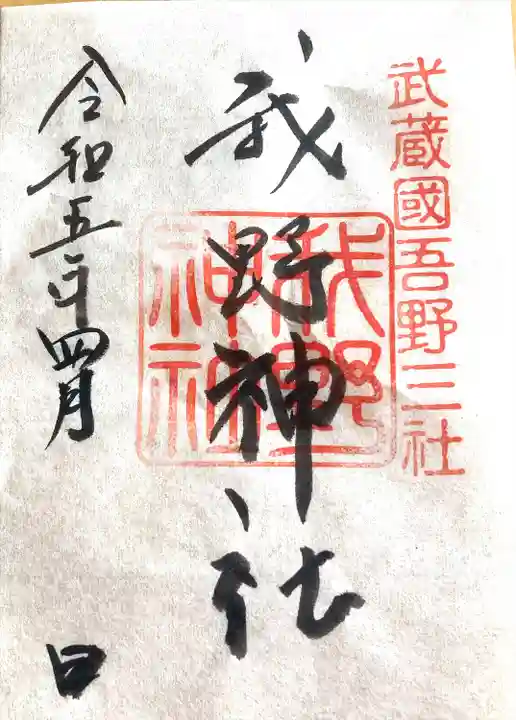 武蔵國吾野三社
我野神社
我野神社
令和五年四月 日